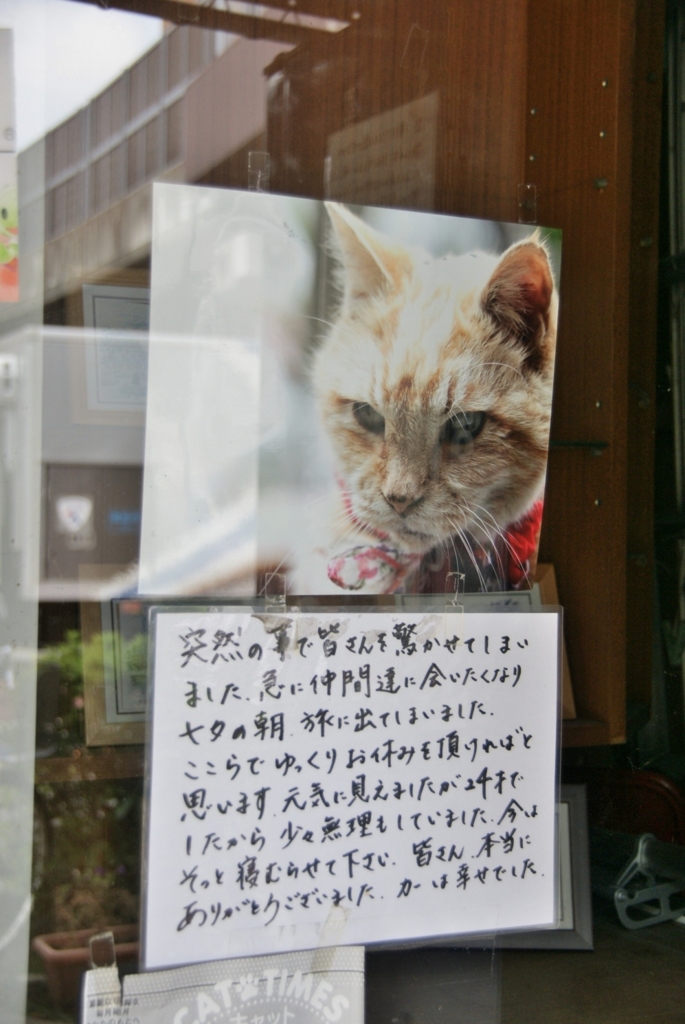 突然の事で皆さんを驚かせてしまい
ました、急に仲間達に会いたくなり
七夕の朝、旅に出てしまいました、
ここらでゆっくりお休みを頂ければと
思います、元気に見えましたが24才で
したから少々無理もしていました、今は
そっと寝むらせて下さい、皆さん、本当に
ありがとうございました、カーは幸せでした、
CAT TIMES
キャット